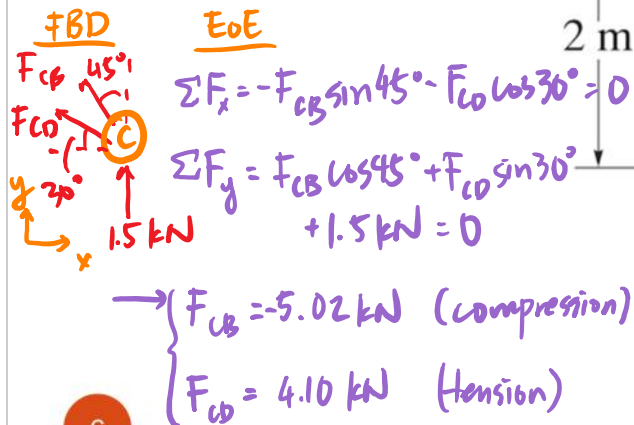 FBD
EoE
2 m
F_CB 45°
F_CD
C
30°
y
x
1.5 kN
ΣF_x = -F_CB sin45° - F_CD cos30° = 0
ΣF_y = F_CB cos45° + F_CD sin30°
+ 1.5 kN = 0
→ { F_CB = -5.02 kN (compression)
F_CD = 4.10 kN (tension)